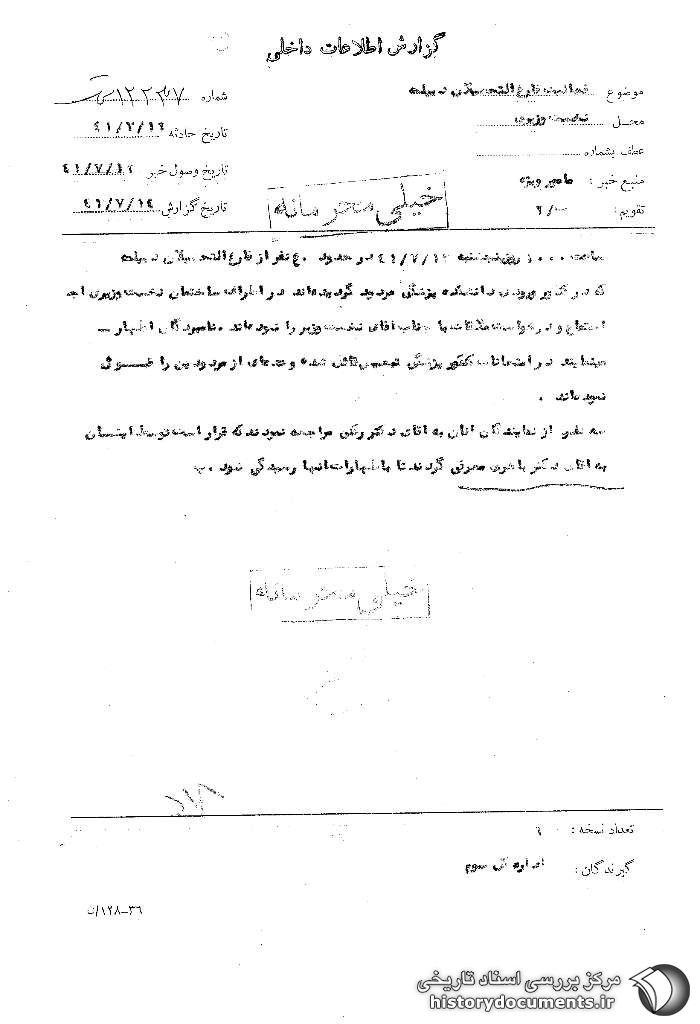 گزارش اطلاعات داخلی
موضوع فعالیت فارغ التحصیلان دیپلمه
محل نخست وزیری
عطف بشماره
منبع خبر : مامور ویژه
تقویم :
شماره
تاریخ حادثه
تاریخ وصول خبر
تاریخ گزارش ۴۱/۷/۱۴
خیلی محرمانه
ساعت روز پنجشنبه ۴۱/۷/۱۲ در حدود نفر از فارغ التحصیلان دیپلمه
که در کنکور ورودی دانشکده پزشکی مردود گردیده‌اند در اطراف ساختمان نخست وزیری اجـ
تماع و درخواست ملاقات با جناب آقای نخست وزیر را نموده‌اند . نامبردگان اظهار –
مینمایند در امتحانات کنکور پزشکی تبعیض قائل شده و عده‌ای از مردودین را قبـــول
نموده‌اند .
سه نفر از نمایندگان آنان به آقای دکتر مراجعه نمودند که قرار است توسط ایشـان
به آقای دکتر باهری معرفی گردند تا باظهارات آنها رسیدگی شود . ب
خیلی محرمانه
تعداد نسخه :
گیرندگان : اداره کل سوم
۱۲۸-۳۶/ن
مرکز بررسی اسناد تاریخی
historydocuments.ir